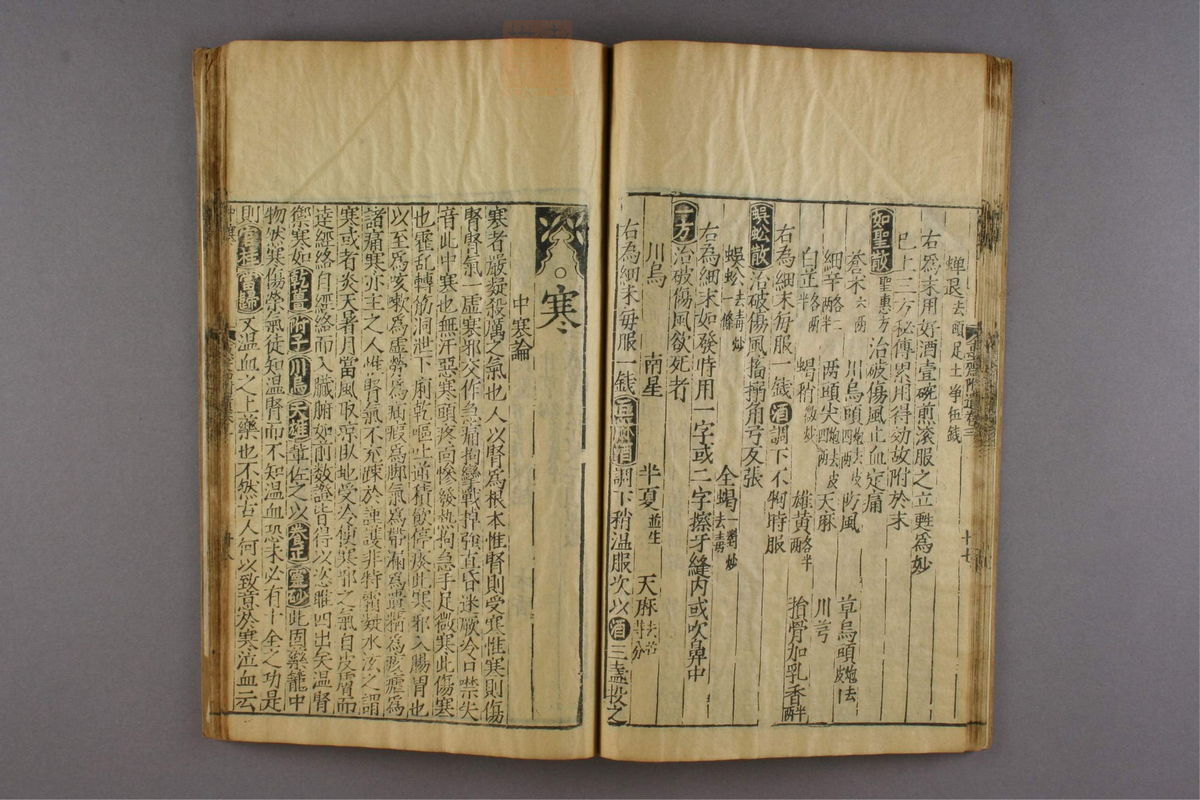 蟬退去頭足土淨伍錢
右爲末用好酒壹碗煎滾服之立甦爲妙
已上三方秘傳累用得効故附於末
如聖散 聖惠方 治破傷風止血定痛
蒼朮六兩 川烏頭炮去皮四兩 防風 草烏頭炮去皮
細辛各二兩半 兩頭尖炮去皮四兩 天麻 川芎
白芷各兩半 蝎稍微炒 雄黃各半兩 獖骨加乳香半兩
右為細末每服一錢酒調下不拘時服
蜈蚣散 治破傷風搐搦角弓反張
蜈蚣去毒炒一條 全蝎一對炒去毒
右為細末如發時用一字或二字擦牙縫內或吹鼻中
一方 治破傷風欲死者
川烏 南星 半夏並生 天麻去芦等分
右為細末每服一錢豆淋酒調下稍溫服次以酒三盞投之
十七
寒
中寒論
寒者嚴凝殺厲之氣也人以腎爲根本惟腎則受寒惟寒則傷
腎腎氣一虛寒邪交作急痛拘攣戰掉強直昏迷厥冷口噤失
音此中寒也無汗惡寒頭疼面慘發熱拘急手足微寒此傷寒
也霍乱轉筋洞泄下痢乾嘔吐逆積飲停痰此寒邪入腸胃也
以至爲咳嗽爲虛勞爲癥瘕爲脚氣爲帶漏爲遺精爲痎瘧爲
諸痛寒亦主之人惟腎氣不充疎於
寒或者炎天暑月當風取凉臥地受冷使寒邪之氣自皮膚而
達經絡自經絡而入臟腑如前數證皆得以恣睢四出矣溫腎
禦寒如乾薑附子川烏天雄輩佐之以養正靈砂此固藥籠中
物然寒傷榮氣徒知溫腎而不知溫血恐未必有十全之功是
則官桂當歸又溫血之上藥也不然古人何以致意於寒泣血云